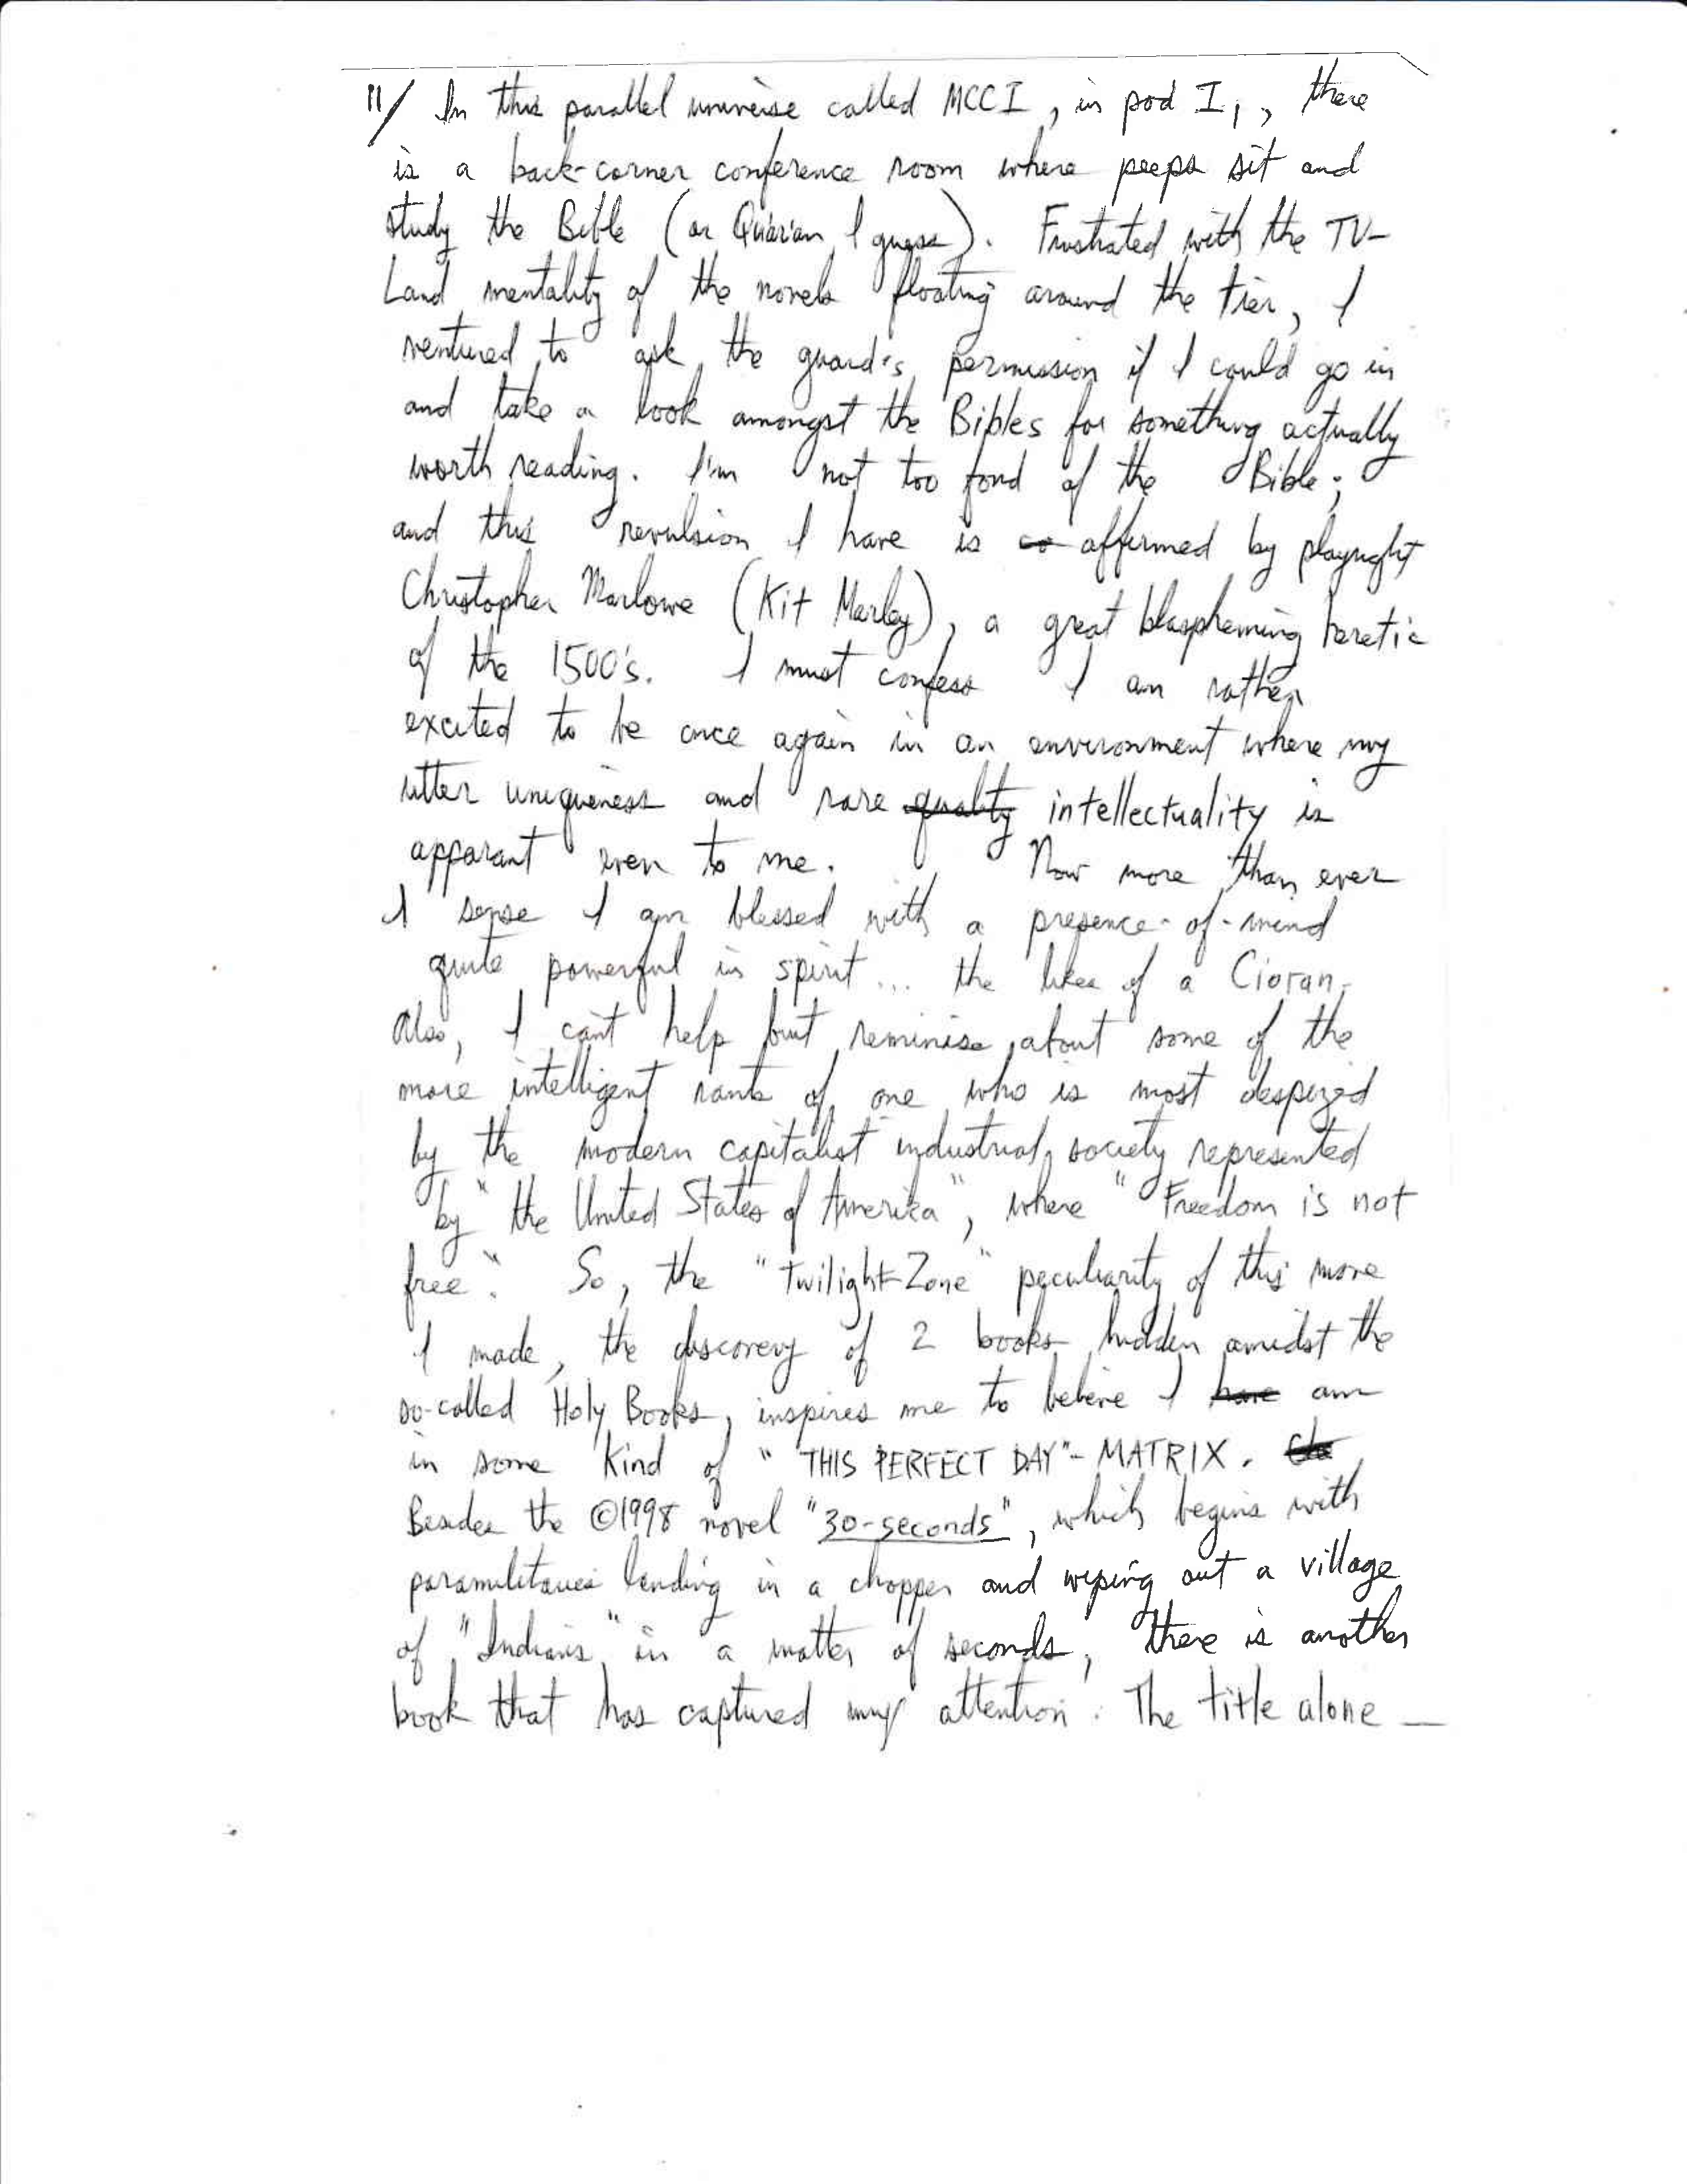 11/ In this parallel universe called MCCI, in pod I1, there
is a back-corner conference room where peeps sit and
study the Bible (or Quar'an, I guess). Frustrated with the TV-
Land mentality of the novels floating around the tier, I
ventured to ask the guard's permission if I could go in
and take a look amongst the Bibles for something actually
worth reading. I'm not too fond of the Bible;
and this revulsion I have is co affirmed by playright
Christopher Marlowe (Kit Marley), a great blaspheming heretic
of the 1500's. I must confess I am rather
excited to be once again in an environment where my
utter uniqueness and rare quality intellectuality is
apparant even to me. Now more than ever
I sense I am blessed with a presence-of-mind
quite powerful in spirit... the likes of a Cioran.
Also, I can't help but reminise about some of the
more intelligent rants of one who is most despized
by the modern capitalist industrial society represented
by "the United States of Amerika", where "Freedom is not
free". So, the "Twilight-Zone" peculiarity of this move
I made, the discovery of 2 books hidden amidst the
so-called Holy Books, inspires me to beleive I have am
in some kind of "THIS PERFECT DAY"-MATRIX.
Besides the ©1998 novel "30-seconds", which begins with
paramilitaries landing in a chopper and wiping out a village
of "Indians" in a matter of seconds, there is another
book that has captured my attention. The title alone —